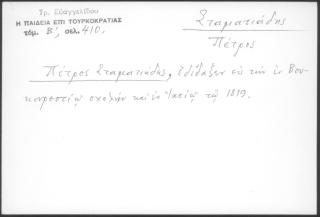 Τρ. Εὐαγγελίδου
Η ΠΑΙΔΕΙΑ ΕΠΙ ΤΟΥΡΚΟΚΡΑΤΙΑΣ
τόμ. Β', σελ. 410.
Σταματιάδης
Πέτρος
Πέτρος Σταματιάδης, ἐδίδαξεν εἰς τὴν ἐν Βου-
κουρεστίῳ σχολὴν καὶ ἐν Ἰασίῳ τῷ 1819.